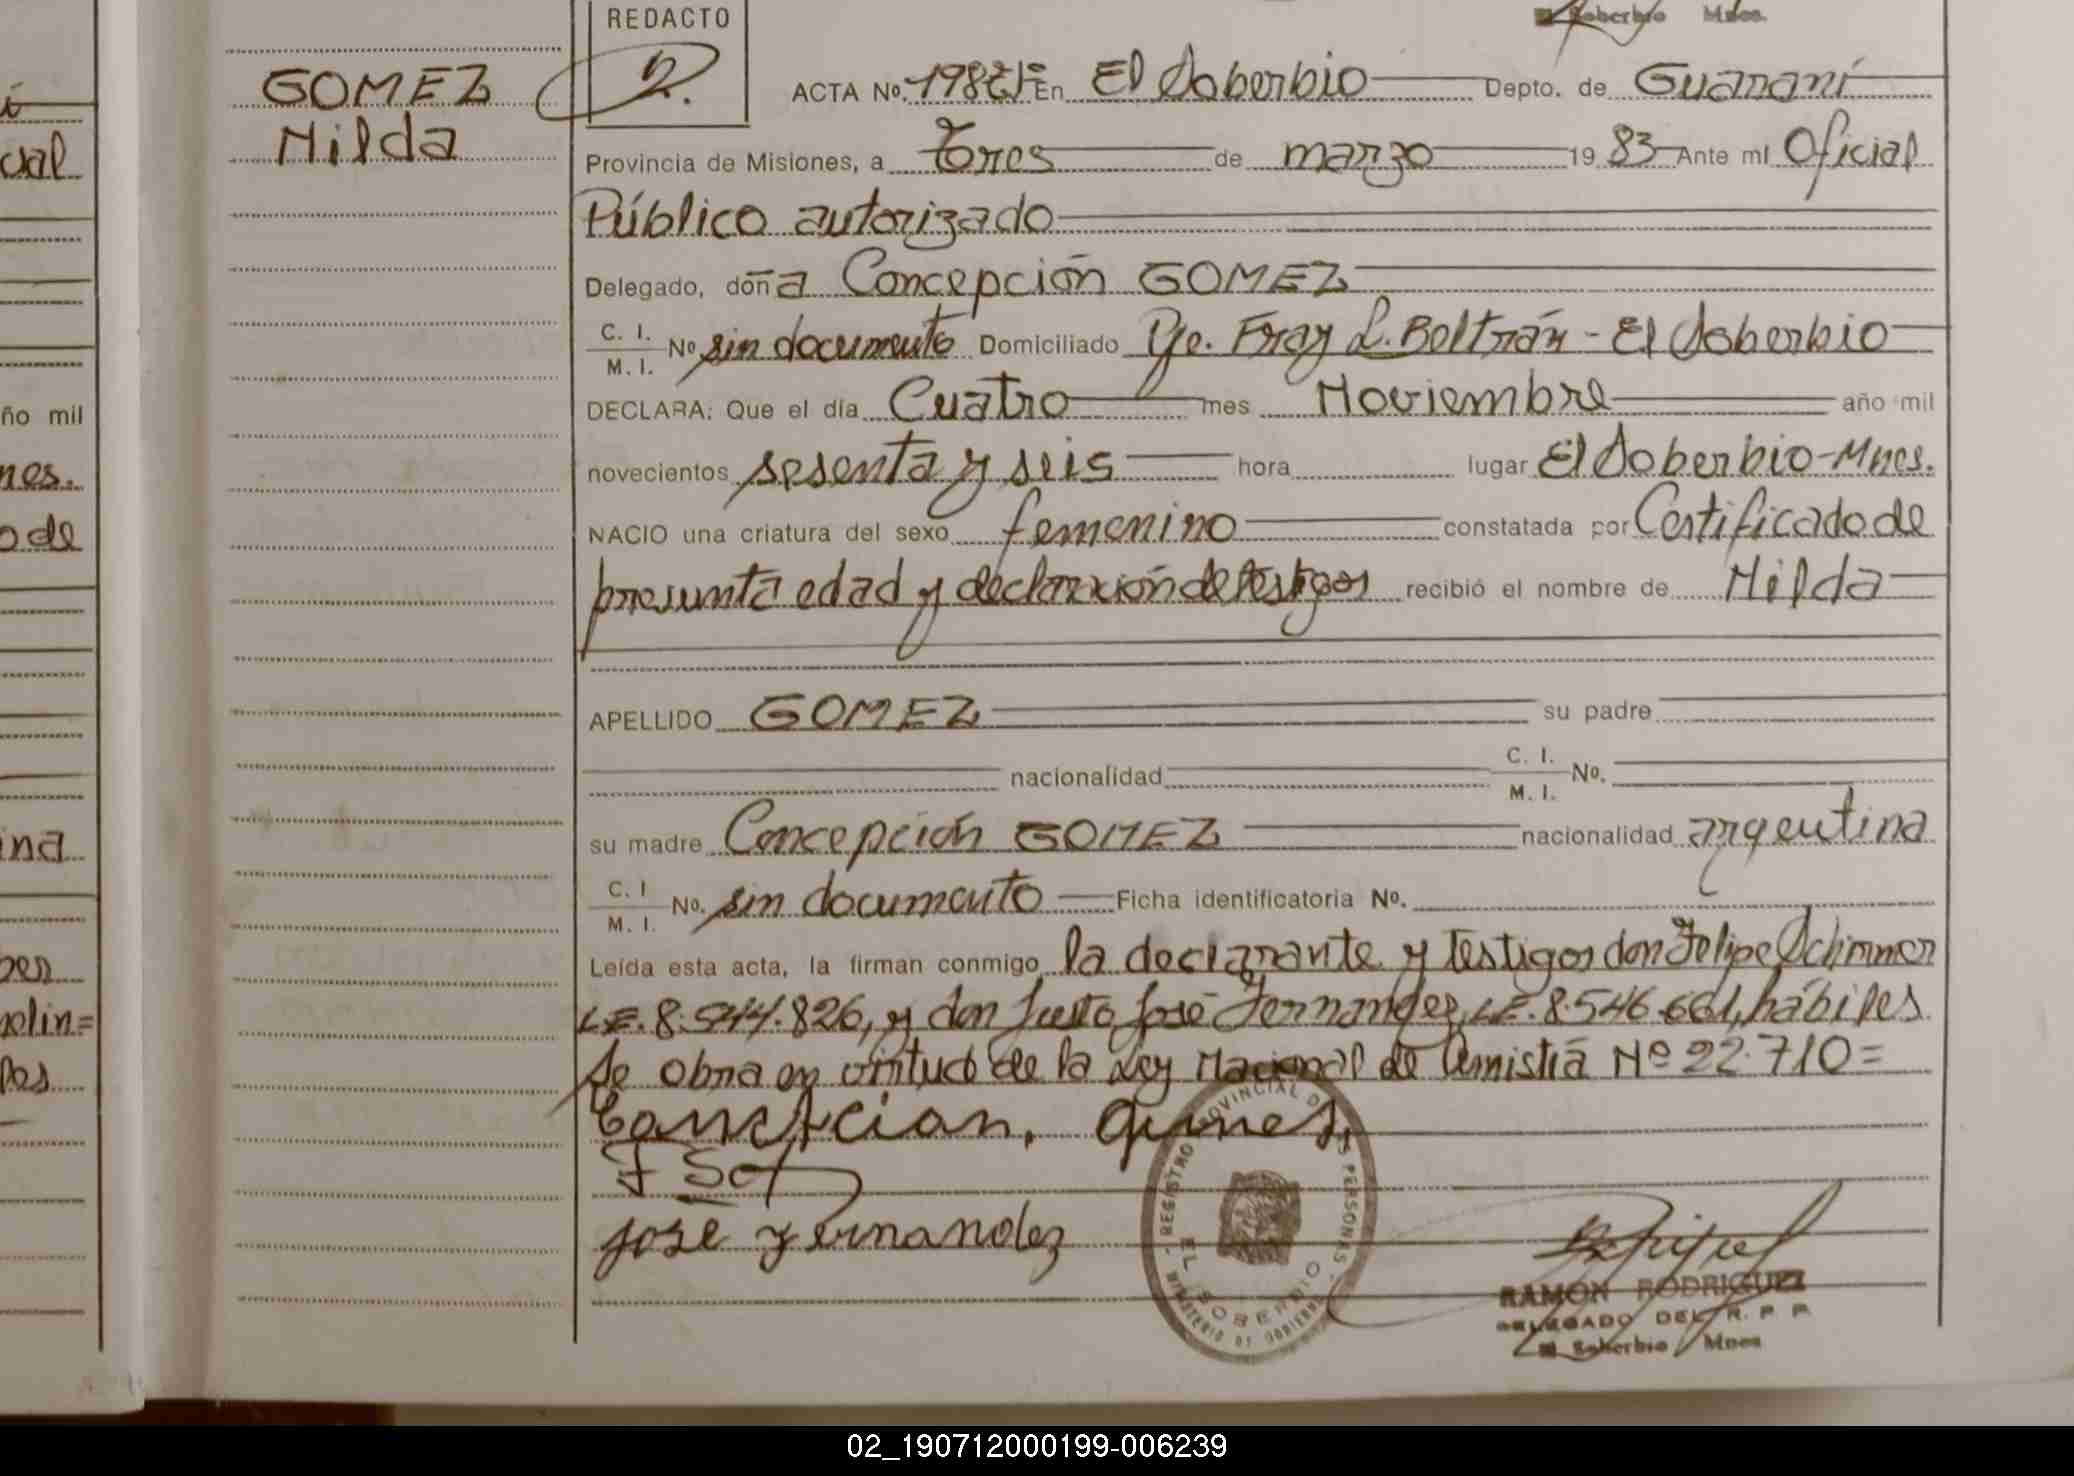 Soberbio Mnes.
REDACTO
GOMEZ
Nilda
ACTA No. En El Soberbio Depto. de Guaraní
Provincia de Misiones, a Tres de marzo 19 83 Ante mí Oficial
Público autorizado
Delegado, doña Concepción GOMEZ
C. I.
M. I. No sin documento Domiciliado Pje. Fray L. Beltrán - El Soberbio
DECLARA: Que el día Cuatro mes Noviembre año mil
novecientos sesenta y seis hora lugar El Soberbio-Mnes.
NACIO una criatura del sexo femenino constatada por Certificado de
presunta edad y declaración de testigos recibió el nombre de Nilda
APELLIDO GOMEZ su padre
nacionalidad C. I.
M. I. No.
su madre Concepción GOMEZ nacionalidad argentina
C. I
M. I. No. sin documento Ficha identificatoria No.
Leída esta acta, la firman conmigo la declarante y testigos don Felipe
L.E. 8.544.826, y don Justo José Fernandez, L.E. 8.546.661, hábiles.
Se obra en virtud de la Ley Nacional de Amnistía Nº 22.710=
Jose Fernandez
REGISTRO PROVINCIAL DE LAS PERSONAS
EL SOBERBIO
MINISTERIO DE GOBIERNO
RAMON RODRIGUEZ
DELEGADO DEL R. P. P.
El Soberbio Mnes
ño mil
nes.
o de
ina
02_190712000199-006239